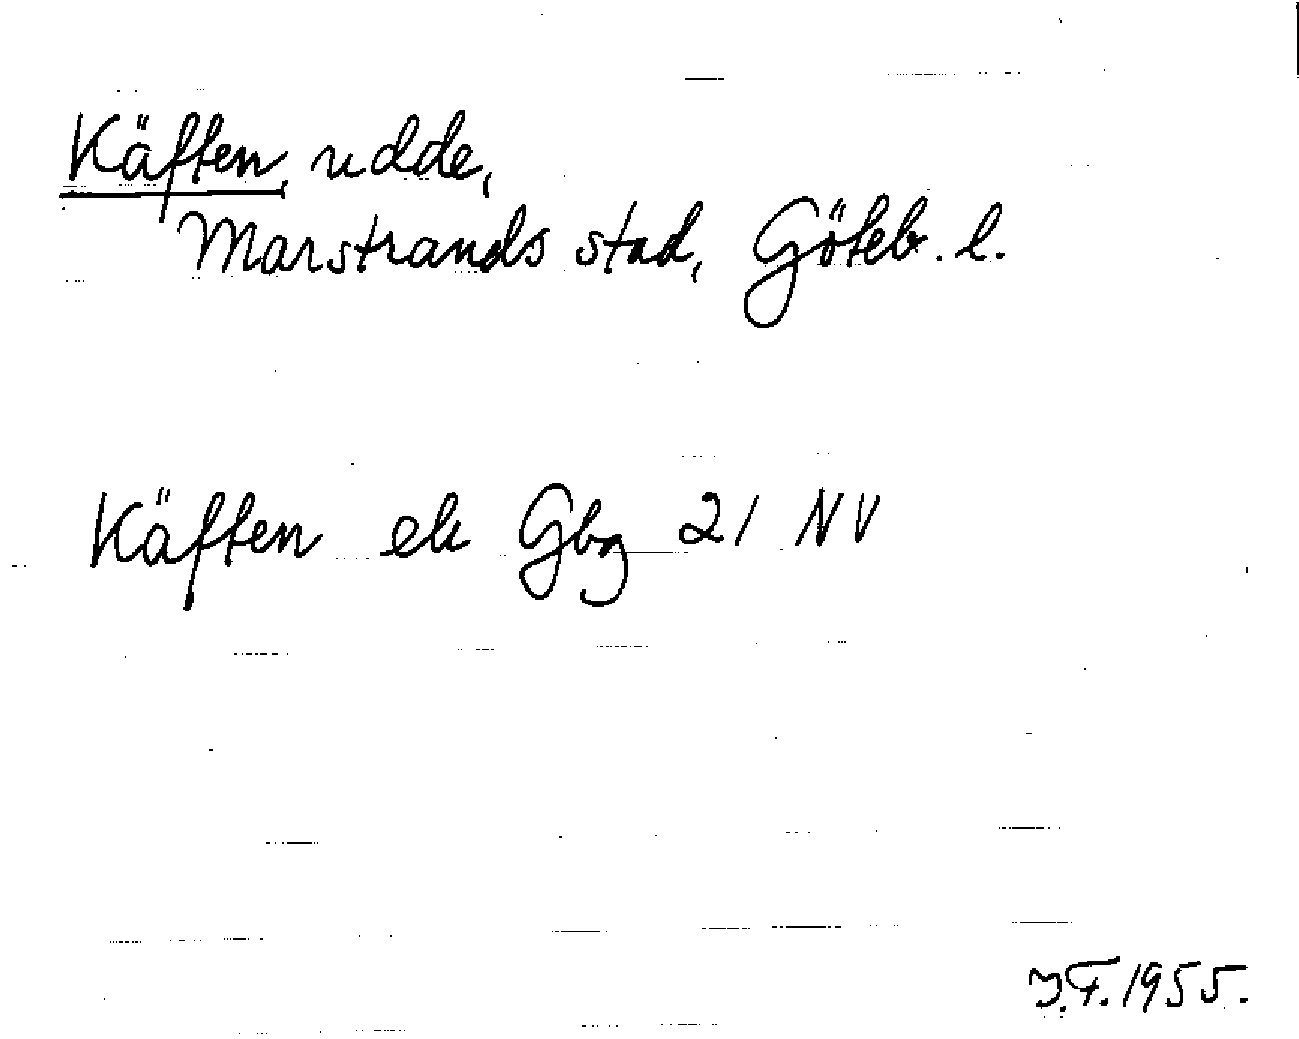 Käften, udde,
Marstrands stad, Göteb. l.
Käften ek Gbg 21 NV
J.F. 1955.